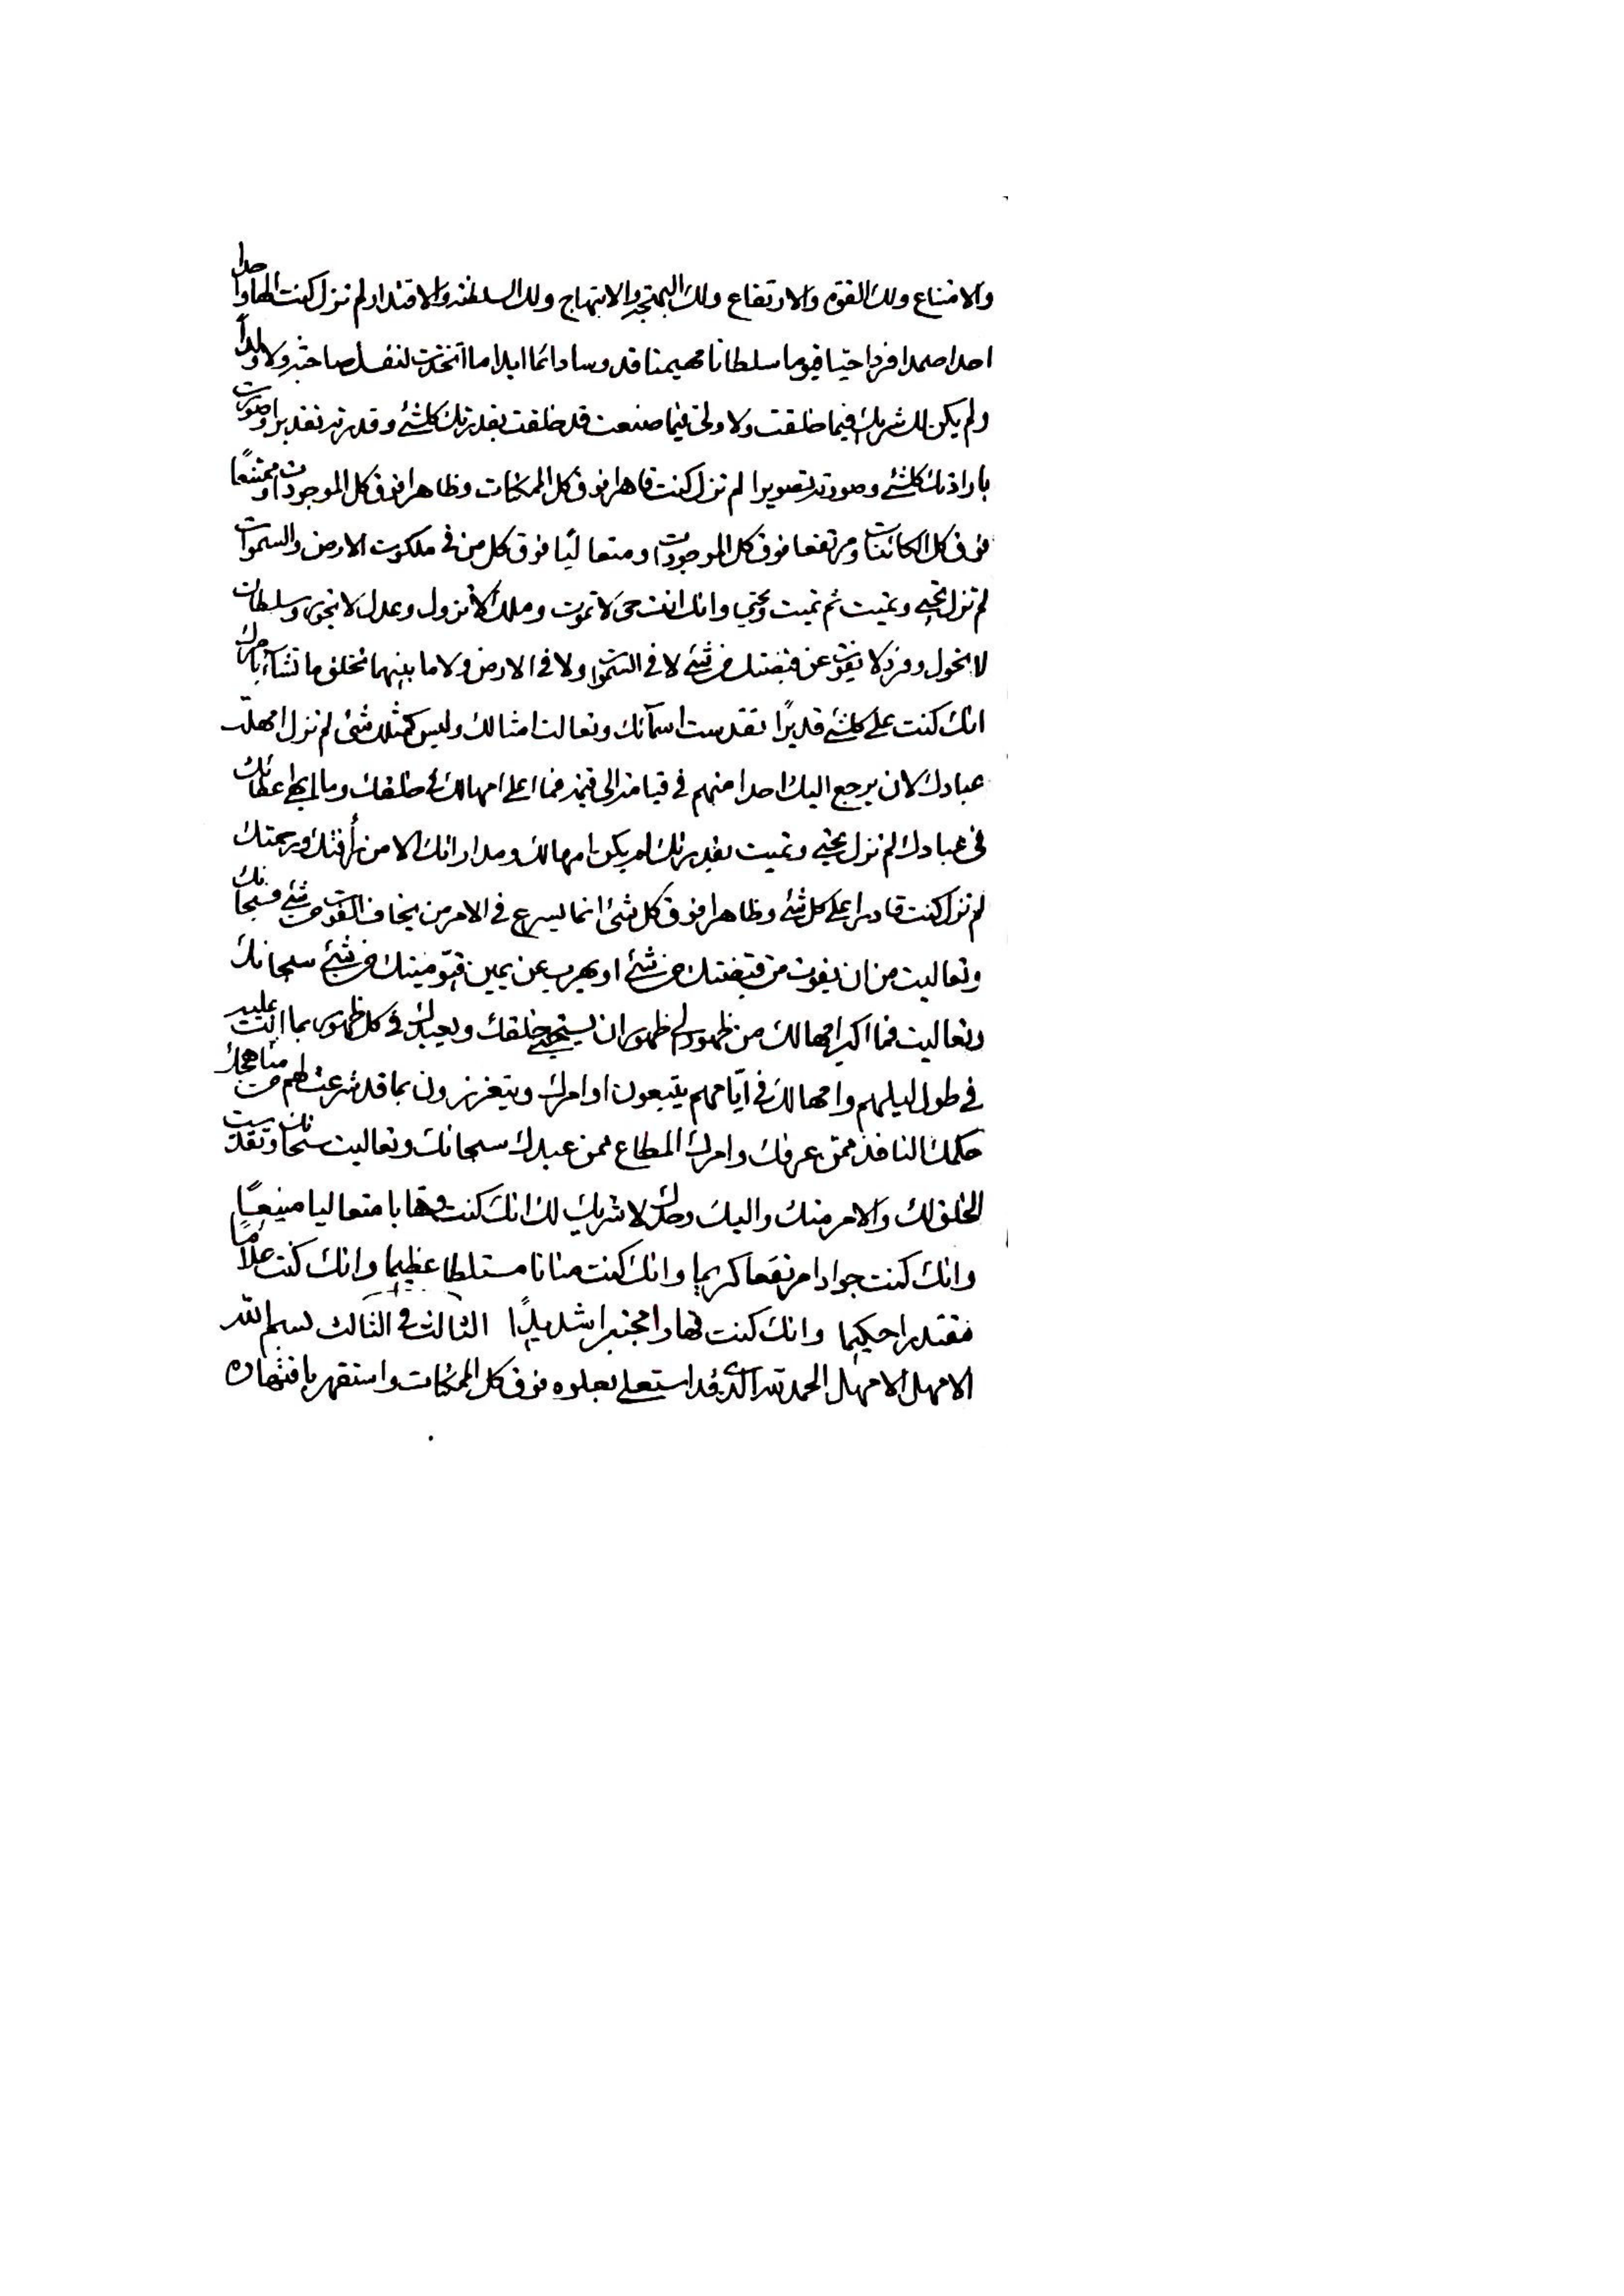 والامتناع ولك القوة والارتفاع ولك البهجة والابتهاج ولك السلطنة والاقتدار لم تزل كنت الها واحدا
احدا صمدا فردا حيّا قيوما سلطانا مهيمنا قدوسا دائما ابدا ما اتخذت لنفسك صاحبة ولا ولداً
ولم يكن لك شريك فيما خلقت ولا ولي فيما صنعت قد خلقت بقدرتك كلشئ وقدرته تقديرا وصورت
باراذتك كلشئ وصورته تصويرا لم تزل كنت قاهرا فوق كل الممكنات وظاهرا فوق كل الموجودات وممتنعًا
فوق كل الكائنات ومرتفعا فوق كل الموجودات ومتعاليًا فوق كل من في ملكوت الارض والسموات
لم تزل تحيي وتميت ثم تميت وتحيي وانك انت حي لا تموت وملك لا تزول وعدل لا تجور وسلطان
لا تحول وفرد لا يفوت عن قبضتك من شئ لا في السموات ولا في الارض ولا ما بينهما تخلق ما تشآء بامرك
انك كنت على كلشئ قديرًا تقدست اسمآئك وتعالت امثالك وليس كمثلك شئ لم تزل امهلت
عبادك لان يرجع اليك احدا منهم في قيامة الى قيمة فما اعلى امهالك في خلقك وما ابهى اعطائك
في عبادك لم تزل تحيي وتميت بقدرتك لم يكن امهالك ومداراتك الا من رأفتك ورحمتك
لم تزل كنت قادرا على كل شئ وظاهرا فوق كل شئ انما يسرع في الامر من يخاف الفوت من شئ فسبحانك
وتعاليت من ان يفوت من قبضتك من شئ او يهرب عن يمين قيّوميتك من شئ سبحانك
وتعاليت فما اكبر امهالك من ظهور الى ظهور ان يستحيي خلقك ويعبدك في كل ظهور بما انت عليه
في طول ليلهم وامهالك في ايّامهم يتبعون اوامرك ويتعززون بما قد شرعت لهم من مناهجك
حكمك النافذ ممن عرفك وامرك المطاع لمن عبدك سبحانك وتعاليت سبحانك وتقدست
الخلق لك والامر منك واليك وحدك لا شريك لك انك كنت وهّابا متعاليا منيعًا
وانك كنت جوادا مرتفعا كريما وانك كنت منانا مستلطا عظيما وانك كنت علامًا
مقتدرا حكيما وانك كنت قهارا مجتبرا شديدًا الثالث في الثالث بسم الله
الامهل الامهل الحمد لله الذي قد استعلى بعلوه فوق كل الممكنات واستقهر باقتهاره